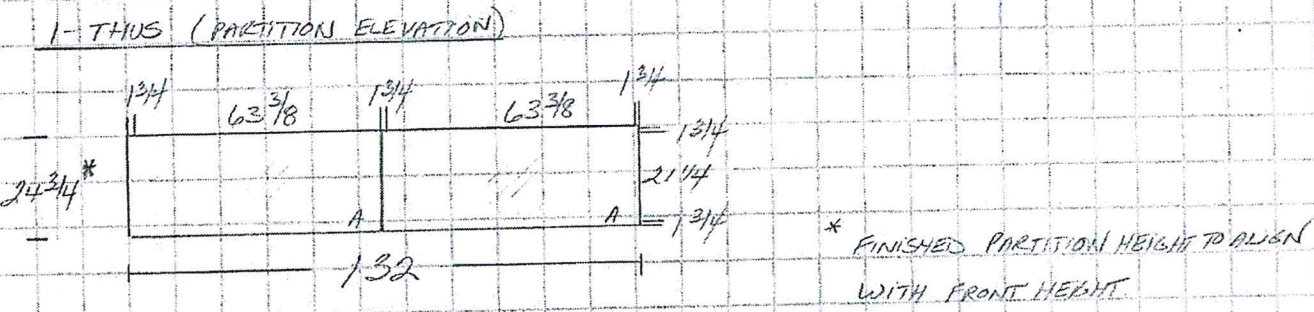 1- THUS (PARTITION ELEVATION)
1 3/4 63 3/8 1 3/4 63 3/8 1 3/4
1 3/4
24 3/4 * 21 1/4
A A 1 3/4
132
* FINISHED PARTITION HEIGHT TO ALIGN
WITH FRONT HEIGHT